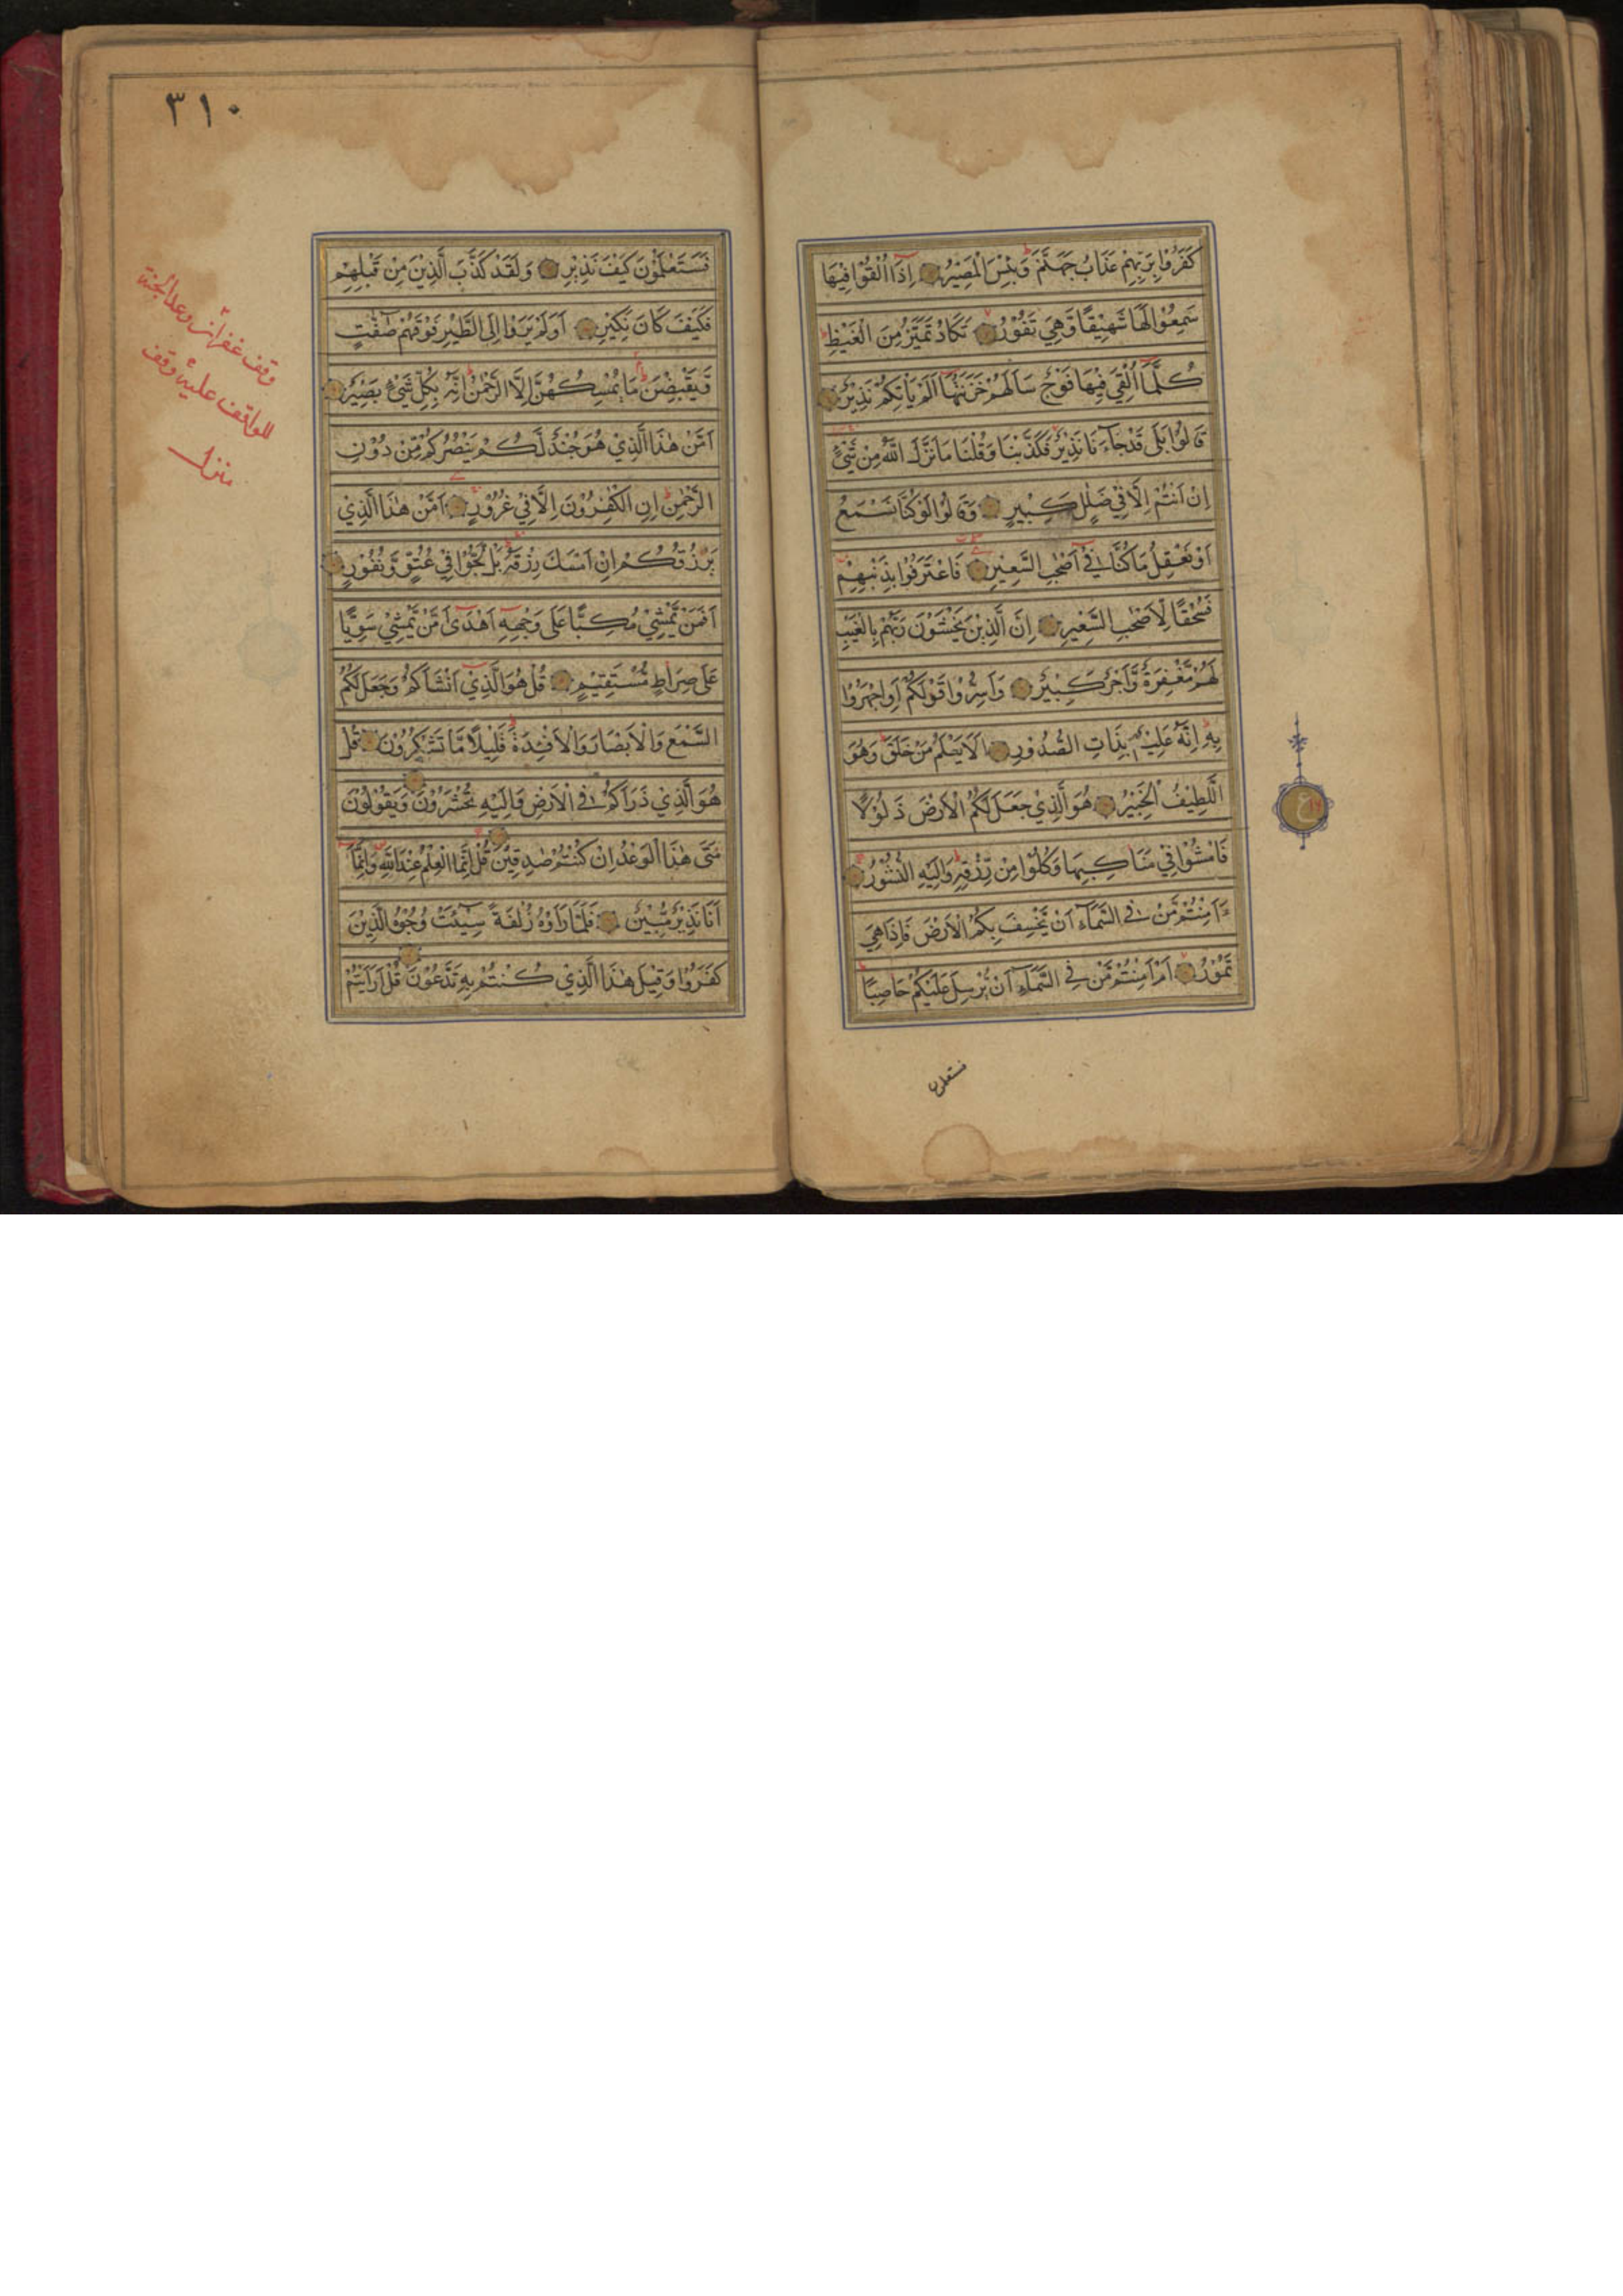 كَفَرُوْا بِرَبِّهِمْ عَذَابُ جَهَنَّمَ ط وَبِئْسَ الْمَصِيْرُ اِذَآ اُلْقُوْا فِيْهَا
سَمِعُوْا لَهَا شَهِيْقًا وَّهِيَ تَفُوْرُ تَكَادُ تَمَيَّزُ مِنَ الْغَيْظِ ط
كُلَّمَآ اُلْقِيَ فِيْهَا فَوْجٌ سَاَلَهُمْ خَزَنَتُهَآ اَلَمْ يَاْتِكُمْ نَذِيْرٌ
قَالُوْا بَلٰى قَدْ جَآءَنَا نَذِيْرٌ فَكَذَّبْنَا وَقُلْنَا مَا نَزَّلَ اللّٰهُ مِنْ شَيْءٍ
اِنْ اَنْتُمْ اِلَّا فِيْ ضَلٰلٍ كَبِيْرٍ وَقَالُوْا لَوْ كُنَّا نَسْمَعُ
اَوْ نَعْقِلُ مَا كُنَّا فِيْٓ اَصْحٰبِ السَّعِيْرِ فَاعْتَرَفُوْا بِذَنْبِهِمْ
فَسُحْقًا لِّاَصْحٰبِ السَّعِيْرِ اِنَّ الَّذِيْنَ يَخْشَوْنَ رَبَّهُمْ بِالْغَيْبِ
لَهُمْ مَّغْفِرَةٌ وَّاَجْرٌ كَبِيْرٌ وَاَسِرُّوْا قَوْلَكُمْ اَوِ اجْهَرُوْا
بِهٖ ط اِنَّهٗ عَلِيْمٌ بِذَاتِ الصُّدُوْرِ اَلَا يَعْلَمُ مَنْ خَلَقَ ط وَهُوَ
اللَّطِيْفُ الْخَبِيْرُ هُوَ الَّذِيْ جَعَلَ لَكُمُ الْاَرْضَ ذَلُوْلًا
فَامْشُوْا فِيْ مَنَاكِبِهَا وَكُلُوْا مِنْ رِّزْقِهٖ ط وَاِلَيْهِ النُّشُوْرُ
ءَاَمِنْتُمْ مَّنْ فِي السَّمَآءِ اَنْ يَّخْسِفَ بِكُمُ الْاَرْضَ فَاِذَا هِيَ
تَمُوْرُ اَمْ اَمِنْتُمْ مَّنْ فِي السَّمَآءِ اَنْ يُّرْسِلَ عَلَيْكُمْ حَاصِبًا ط
فستعلمون
ع
٣١٠
فَسَتَعْلَمُوْنَ كَيْفَ نَذِيْرِ وَلَقَدْ كَذَّبَ الَّذِيْنَ مِنْ قَبْلِهِمْ
فَكَيْفَ كَانَ نَكِيْرِ اَوَلَمْ يَرَوْا اِلَى الطَّيْرِ فَوْقَهُمْ صٰٓفّٰتٍ
وَّيَقْبِضْنَ ط مَا يُمْسِكُهُنَّ اِلَّا الرَّحْمٰنُ ط اِنَّهٗ بِكُلِّ شَيْءٍ بَصِيْرٌ
اَمَّنْ هٰذَا الَّذِيْ هُوَ جُنْدٌ لَّكُمْ يَنْصُرُكُمْ مِّنْ دُوْنِ
الرَّحْمٰنِ ط اِنِ الْكٰفِرُوْنَ اِلَّا فِيْ غُرُوْرٍ اَمَّنْ هٰذَا الَّذِيْ
يَرْزُقُكُمْ اِنْ اَمْسَكَ رِزْقَهٗ بَلْ لَّجُّوْا فِيْ عُتُوٍّ وَّنُفُوْرٍ
اَفَمَنْ يَّمْشِيْ مُكِبًّا عَلٰى وَجْهِهٖٓ اَهْدٰٓى اَمَّنْ يَّمْشِيْ سَوِيًّا
عَلٰى صِرَاطٍ مُّسْتَقِيْمٍ قُلْ هُوَ الَّذِيْٓ اَنْشَاَكُمْ وَجَعَلَ لَكُمُ
السَّمْعَ وَالْاَبْصَارَ وَالْاَفْئِدَةَ ط قَلِيْلًا مَّا تَشْكُرُوْنَ قُلْ
هُوَ الَّذِيْ ذَرَاَكُمْ فِي الْاَرْضِ وَاِلَيْهِ تُحْشَرُوْنَ وَيَقُوْلُوْنَ
مَتٰى هٰذَا الْوَعْدُ اِنْ كُنْتُمْ صٰدِقِيْنَ قُلْ اِنَّمَا الْعِلْمُ عِنْدَ اللّٰهِ وَاِنَّمَآ
اَنَا نَذِيْرٌ مُّبِيْنٌ فَلَمَّا رَاَوْهُ زُلْفَةً سِيْٓئَتْ وُجُوْهُ الَّذِيْنَ
كَفَرُوْا وَقِيْلَ هٰذَا الَّذِيْ كُنْتُمْ بِهٖ تَدَّعُوْنَ قُلْ اَرَاَيْتُمْ
وقف غفران وعد الجنة
للواقف عليه وقف
منزل